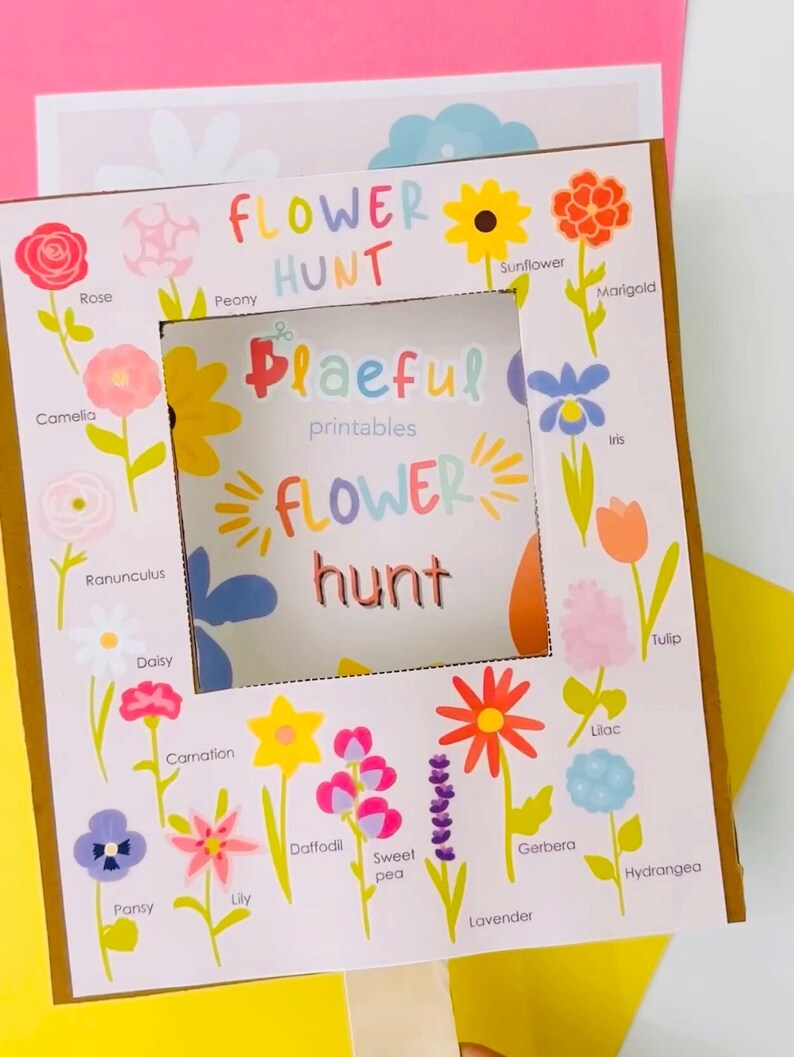 FLOWER
HUNT
Rose
Peony
Sunflower
Marigold
Plaeful
printables
Camelia
Iris
FLOWER
hunt
Ranunculus
Tulip
Daisy
Lilac
Carnation
Daffodil
Sweet
pea
Gerbera
Hydrangea
Pansy
Lily
Lavender